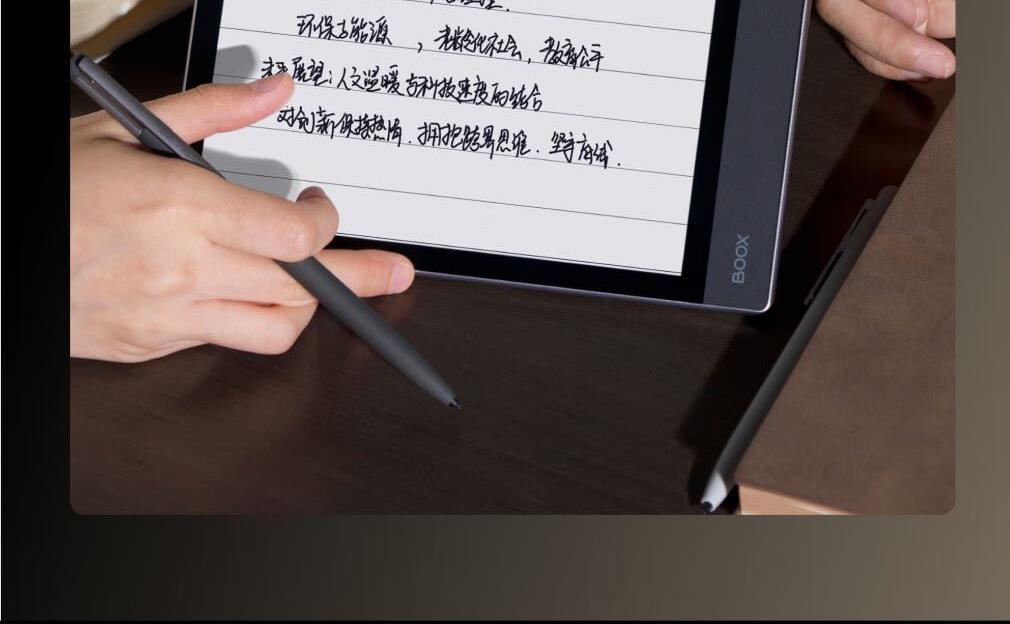 环保与能源，老龄化社会，教育公平
未来展望：人文温暖与科技速度的结合
对创新保持热情．拥抱跨界思维．坚守底线．
BOOX